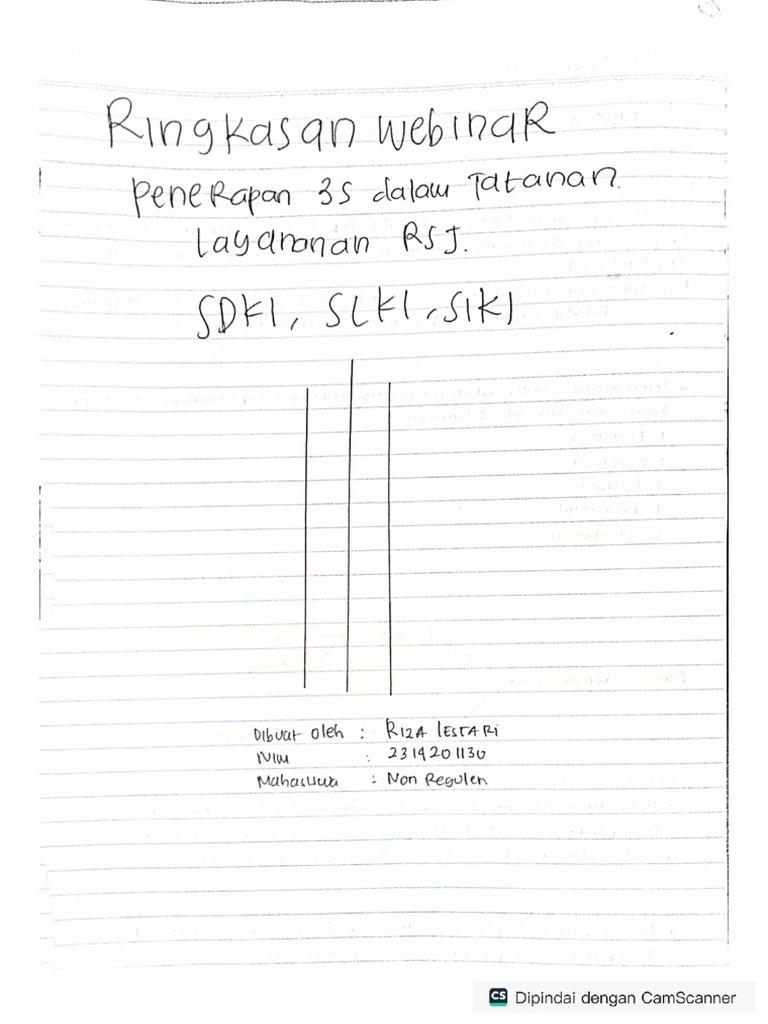 Ringkasan Webinar
Penerapan 3S dalam Tatanan.
Layananan RSJ.
SDKI, SLKI, SIKI
Dibuat oleh : Riza Lestari
Nim : 2314201130
Mahasiswa : Non Reguler
CS Dipindai dengan CamScanner